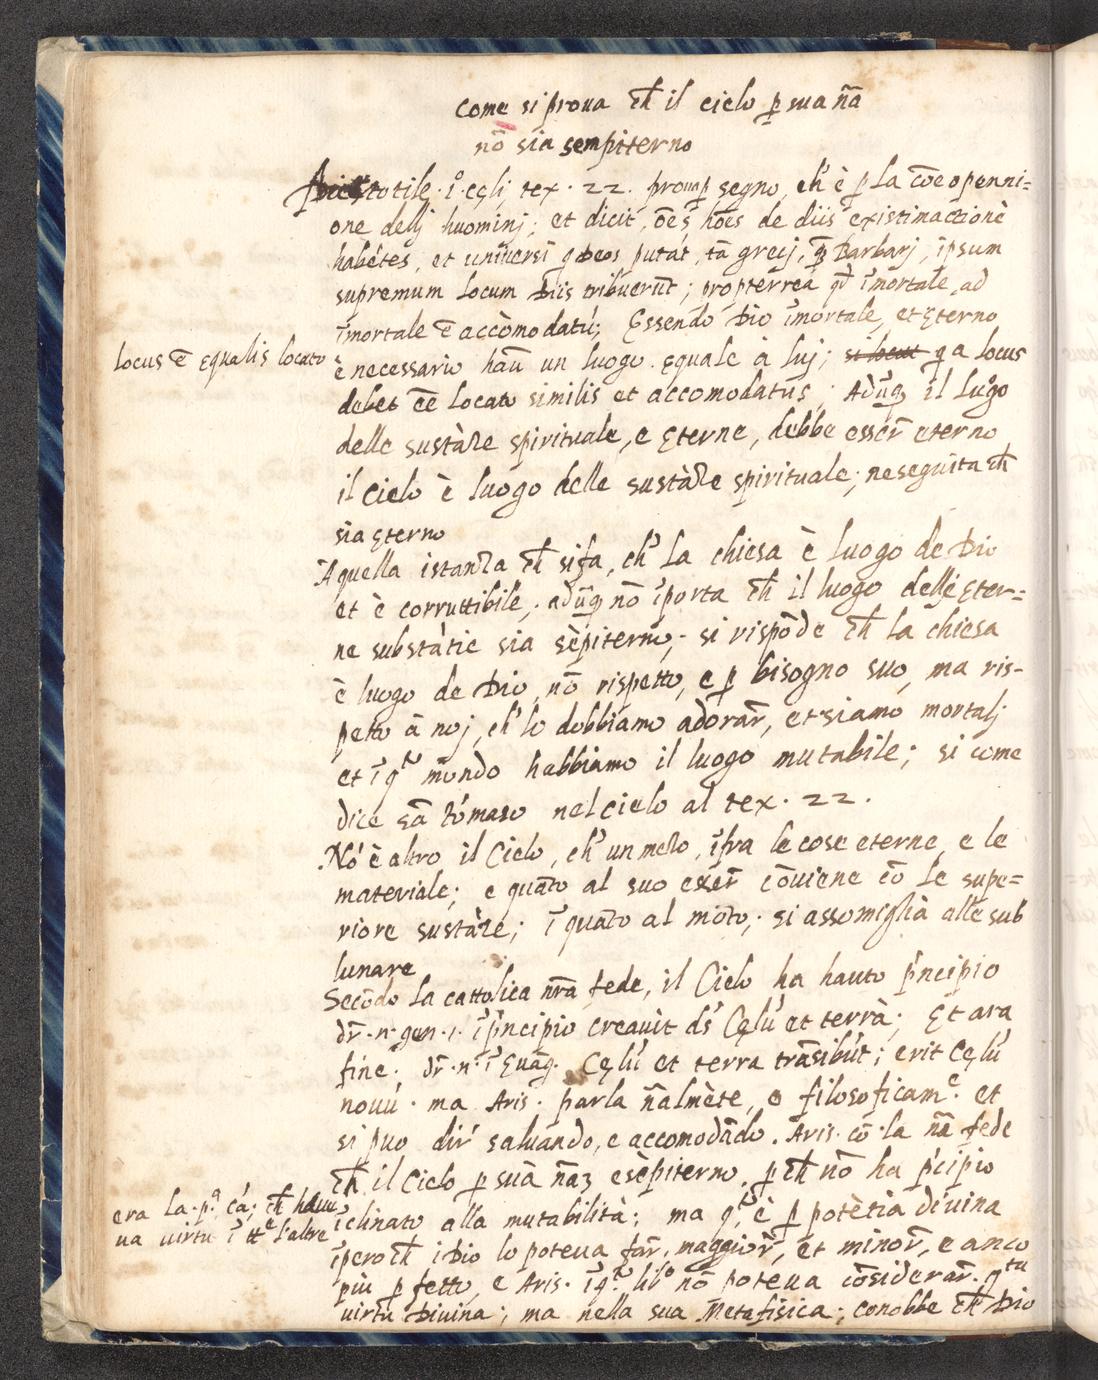 Come si proua ch̃ il cielo p̱ sua nã̃
nō sia sempiterno
Aristotile · ĩ · cęli, tex · 22 · proua p̱ segno, ch' è p̱ la cōe openni=
one delli huomini; et dicit, ōes hōēs de diis existimactionē
habētes, et uniuersi q deos putāt, tā greci, q̄ Barbari, ipsum
supremum locum Diis tribuerūt; propterrea qd̄ īmortale, ad
īmortale ē accōmodatū; Essendo Dio īmortale, et ęterno
locus ē ęqualis locato
è necessario hau̅ un luogo ęquale à lui; q̄a locus
debet ēē locato similis et accomodatus; Adūq̄ il luogo
delle sustāze spirituale, e ęterne, debbe esser̄ eterno
il cielo è luogo delle sustāze spirituale; ne seguita ch̄
sia ęterno
A quella istanza ch̄ si fa, ch' la chiesa è luogo de Dio
et è corruttibile; adūq̄ nō īporta ch̄ il luogo delle ęter=
ne substātie sia sēpiterno; si rispōde ch̄ la chiesa
è luogo de Dio, nō rispetto, e p̱ bisogno suo, ma ris-
petto à noi, ch' lo dobbiamo adorar̄, et siamo mortali
et ī q̄to mōndo habbiamo il luogo mutabile; si come
dice sā Tōmaso nel cielo al tex · 22 ·
Nō è altro il Cielo, ch' un mezo, īfra le cose eterne, e le
materiale; e quāto al suo exer̄ cōuiene cō le supe=
riore sustāze; ī quāto al moto; si assomiglia alle sub
lunare
Secōdo la cattolica nr̄a fede, il Cielo ha hauto p̄ncipio
dr̄ · n · gen · 1 · ī p̄ncipio creauit ds̄ Cęlū et terrā; Et ara
fine; dr̄ · n · ī Euāg · Cęlū et terra trāsibūt; erit Cęlū
nouū · ma Aris · parla nālmēte, e filosoficam.e et
si puo dir̄ saluando, e accomodādo · Aris · cō la nr̄a fede
ch̄ il Cielo p̱ sua nāa, è sēpiterno, p̱ch̄ nō ha p̄cipio
era la · p.a cā; ch̄ haue
ua uirtu ī tt.e l'altre
īclinato alla mutabilità; ma q.to è p̱ potētia diuina
īperoch̄ i Dio lo poteua far̄, maggior̄, et minor̄, e anco
più p̱fetto, e Aris · ī q.to lib.o nō poteua cōsiderar̄ q.ta
uirtù Diuina; ma nella sua Metafisica; conobbe ch̄ Dio